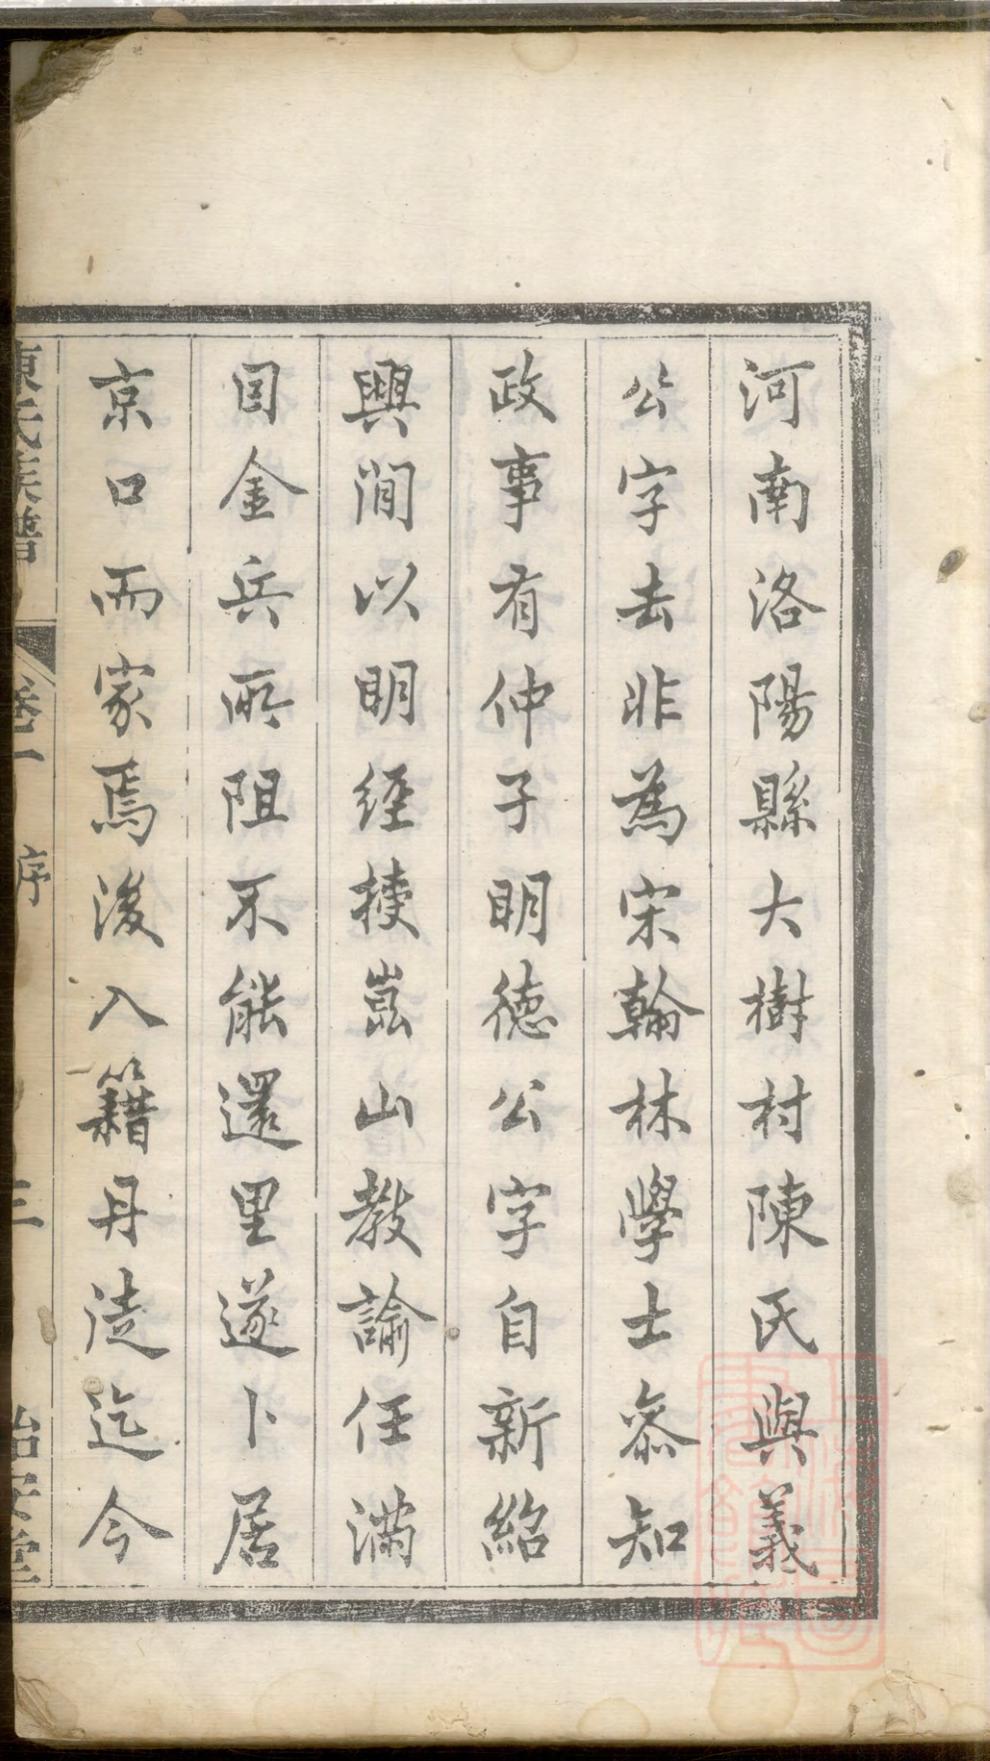 河南洛陽縣大樹村陳氏與義
公字去非為宋翰林學士叅知
政事有仲子明德公字自新紹
興間以明經授崑山教諭任滿
因金兵所阻不能還里遂卜居
京口而家焉後入籍丹徒迄今
陳氏族譜 卷一 序 三